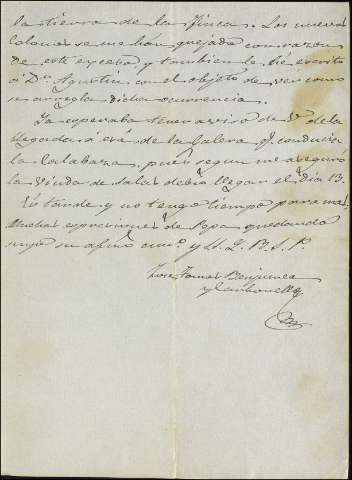 la tierra de la finca. Los nuevos
Colonos se me han quejado con razon
de este exceso, y tambien le hé escrito
á Dn. Agustin con el objeto de ver como
se arregla dicha ocurrencia.
Ya esperaba tener aviso de V. de la
llegada á esa de la Galera q. conducia
la Calabaza, pues segun me aseguró
la Viuda de Salas debia llegar el dia 13.
Es tarde y no tengo tiempo para mas.
Muchas expresiones de Pepa quedando
suyo su afmo. amo. y S. S. Q. B. S. P.
Jose Tomas
y Carbonell